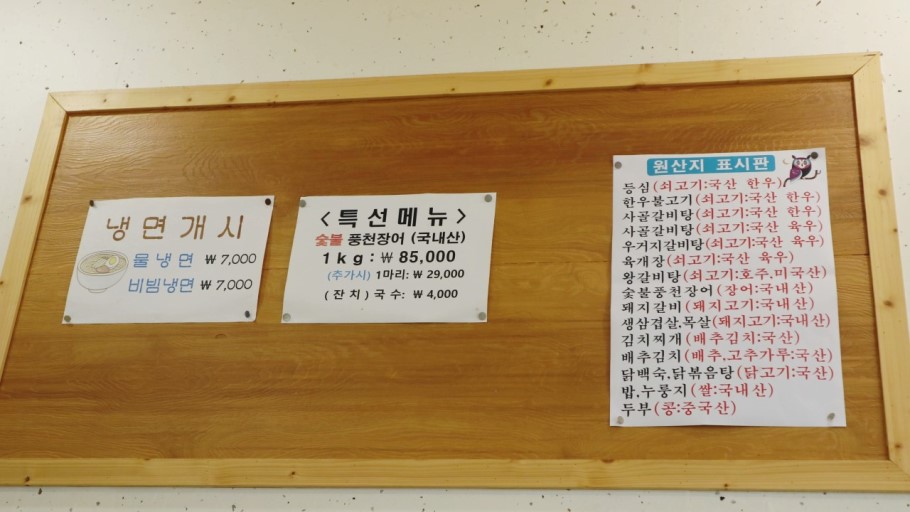 냉면개시
물냉면 ₩7,000
비빔냉면 ₩7,000
<특선메뉴>
숯불 풍천장어 (국내산)
1kg : ₩ 85,000
(추가시) 1마리: ₩ 29,000
(잔치) 국수: ₩ 4,000
원산지 표시판
등심(쇠고기:국산 한우)
한우불고기(쇠고기:국산 한우)
사골갈비탕(쇠고기:국산 한우)
사골갈비탕(쇠고기:국산 육우)
우거지갈비탕(쇠고기:국산 육우)
육개장(쇠고기:국산 육우)
왕갈비탕(쇠고기:호주,미국산)
숯불풍천장어(장어:국내산)
돼지갈비(돼지고기:국내산)
생삼겹살,목살(돼지고기:국내산)
김치찌개(배추김치:국산)
배추김치(배추,고추가루:국산)
닭백숙,닭볶음탕(닭고기:국산)
밥,누룽지(쌀:국내산)
두부(콩:중국산)